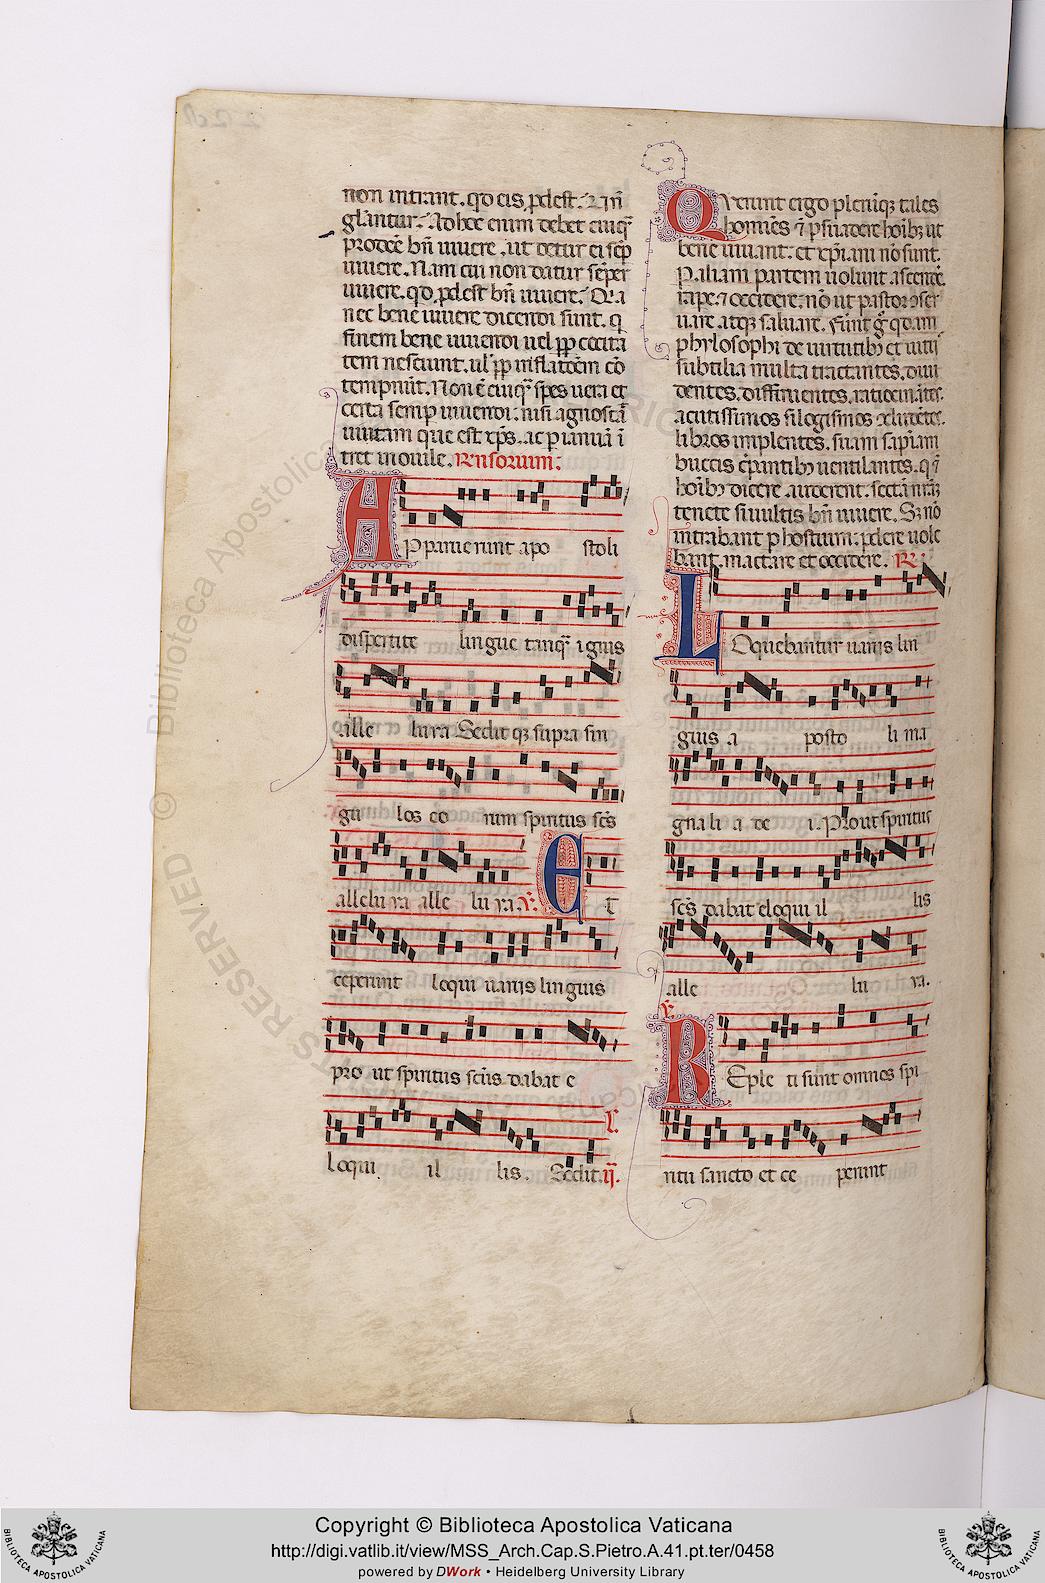 non intrant. qd eis pdest. ut in
glantur. Ad hec enim debet cuiq
prodee bn uiuere. ut detur ei sep
uiuere. Nam cui non datur semper
uiuere. qd pdest bn uiuere. Q a
nec bene uiuere dicendi sunt. q
finem bene uiuendi uel pp cecita
tem nesciunt. ul pp inflatoem co
tempnut. Non e cuiq spes uera et
certa semp uiuendi: nisi agnoscat
uitam que est xps. ac p ianua i
tret in ouile. Rnsorium:
Apparuerunt apo stoli
dispertite lingue tanq ignis
alle luya Sedit q supra sin
gu los eo rum spiritus scs
alleluya alle lu ya. V. Et
ceperunt loqui uariis linguis
pro ut spiritus scus dabat e
loqui il lis. Sedit. ij.
Querunt ergo pleniq tales
homies & psuadere hoib ut
bene uiuant. et xpiani no sunt.
P aliam partem uolunt ascendere
rape. & occidere: no ut pastor oser
uare. atq saluare. Fuert g qdam
phylosophi de uirtutib et uitiis
subtilia multa tractantes. diui
dentes. diffinientes. ratiocinates.
acutissimos silogismos
libros implentes. suam sapiam
buccis crepantib uentilantes. q &
hoib dicere auderent. secta nra
tenete si uultis bn uiuere. Sz no
intrabant p hostium: pdere uole
bant. mactare et occidere. R.
Loquebantur uariis lin
guis a posto li ma
gnali a de i. Prout spiritus
scs dabat eloqui il lis
alle lu ya.
V. Reple ti sunt omnes spi
ritu sancto et ce perunt
BIBLIOTECA APOSTOLICA VATICANA
Copyright © Biblioteca Apostolica Vaticana
http://digi.vatlib.it/view/MSS_Arch.Cap.S.Pietro.A.41.pt.ter/0458
powered by DWork • Heidelberg University Library
BIBLIOTECA APOSTOLICA VATICANA